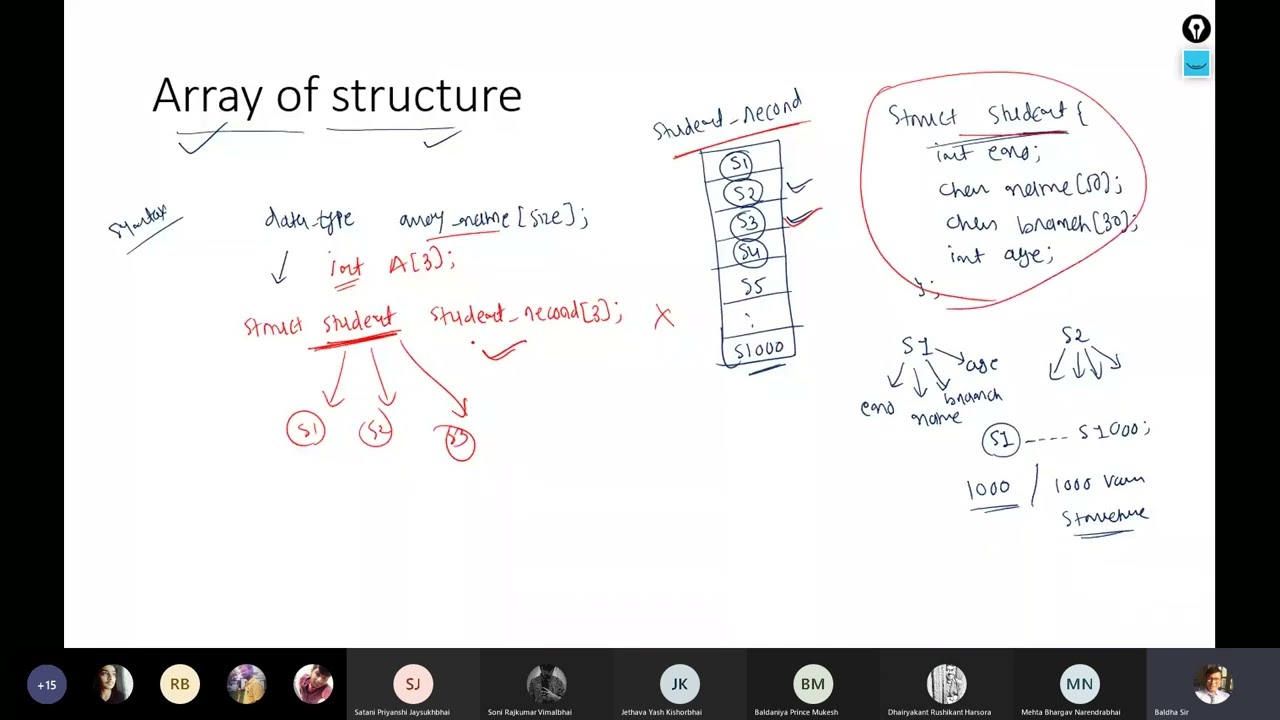 Array of structure
Syntax
data_type array_name[size];
int A[3];
struct student student_record[3]; X
S1 S2 S3
student_record
S1
S2
S3
S4
S5
:
S1000
struct student{
int eno;
char name[50];
char branch[30];
int age;
};
S1
eno
name
branch
age
S2
S1 ---- S1000;
1000 / 1000 Vari
Structure
+15
RB
SJ
Satani Priyanshi Jaysukhbhai
Soni Rajkumar Vimalbhai
JK
Jethava Yash Kishorbhai
BM
Baldaniya Prince Mukesh
Dhairyakant Rushikant Harsora
MN
Mehta Bhargav Narendrabhai
Baldha Sir